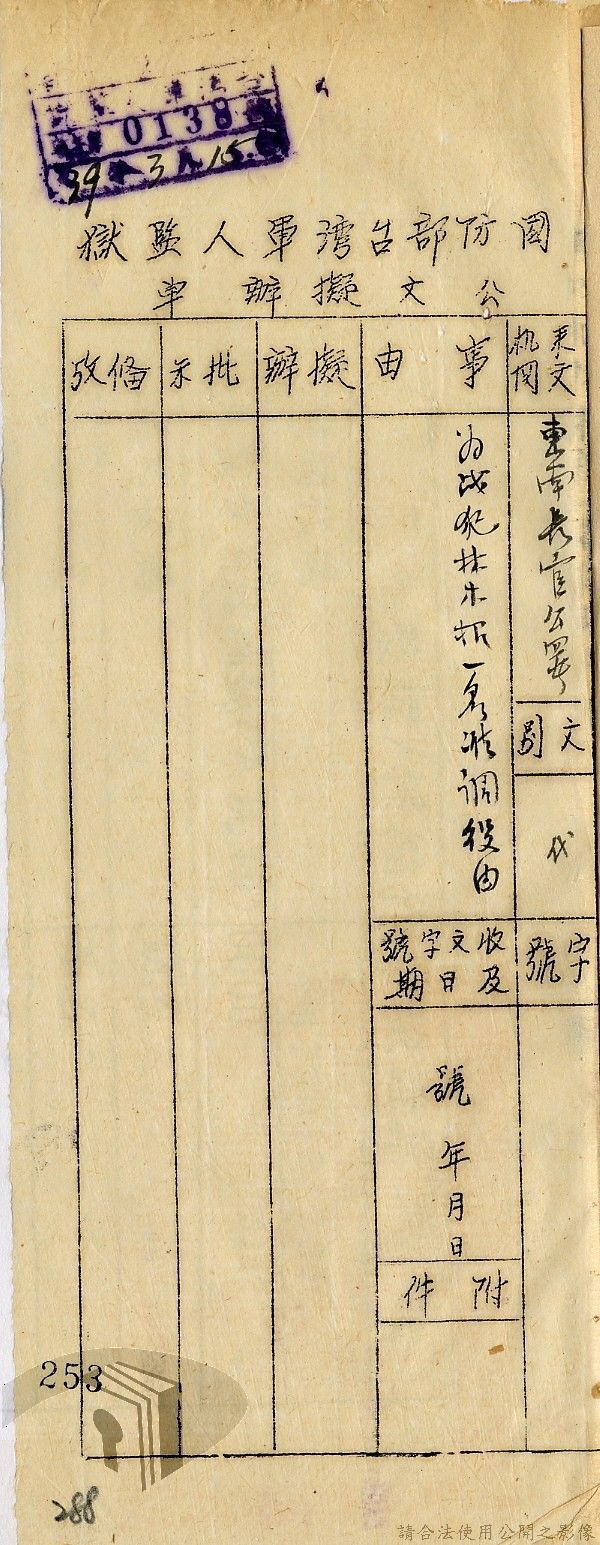 0138
39 3 15
國防部台灣軍人監獄
公文擬辦車
來文机関
東南長官公署
文別
代
字號
事由
為戰犯林木根一名准調役由
收文字號及日期
號
年月日
附件
擬辦
批示
備攷
253
288
請合法使用公開之影像